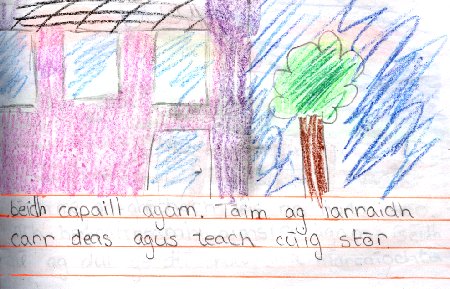 beidh capaill agam. Táim ag iarraidh
carr deas agus teach cúig stór